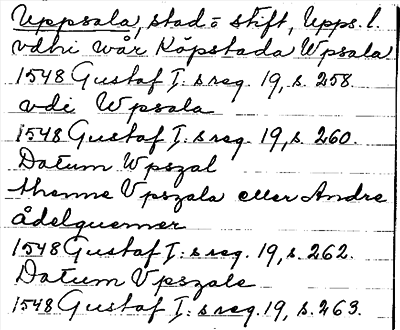 Uppsala, stad o stift, Upps. l.
vdhi wår Köpstada Wpsala
1548 Gustaf I:s reg. 19, s. 258.
vdi Wpsala
1548 Gustaf I:s reg. 19, s. 260.
Datum Wpszal
thenne Vpszala eller Andre
ådelguemer
1548 Gustaf I:s reg. 19, s. 262.
Datum Vpszale
1548 Gustaf I:s reg. 19, s. 263.